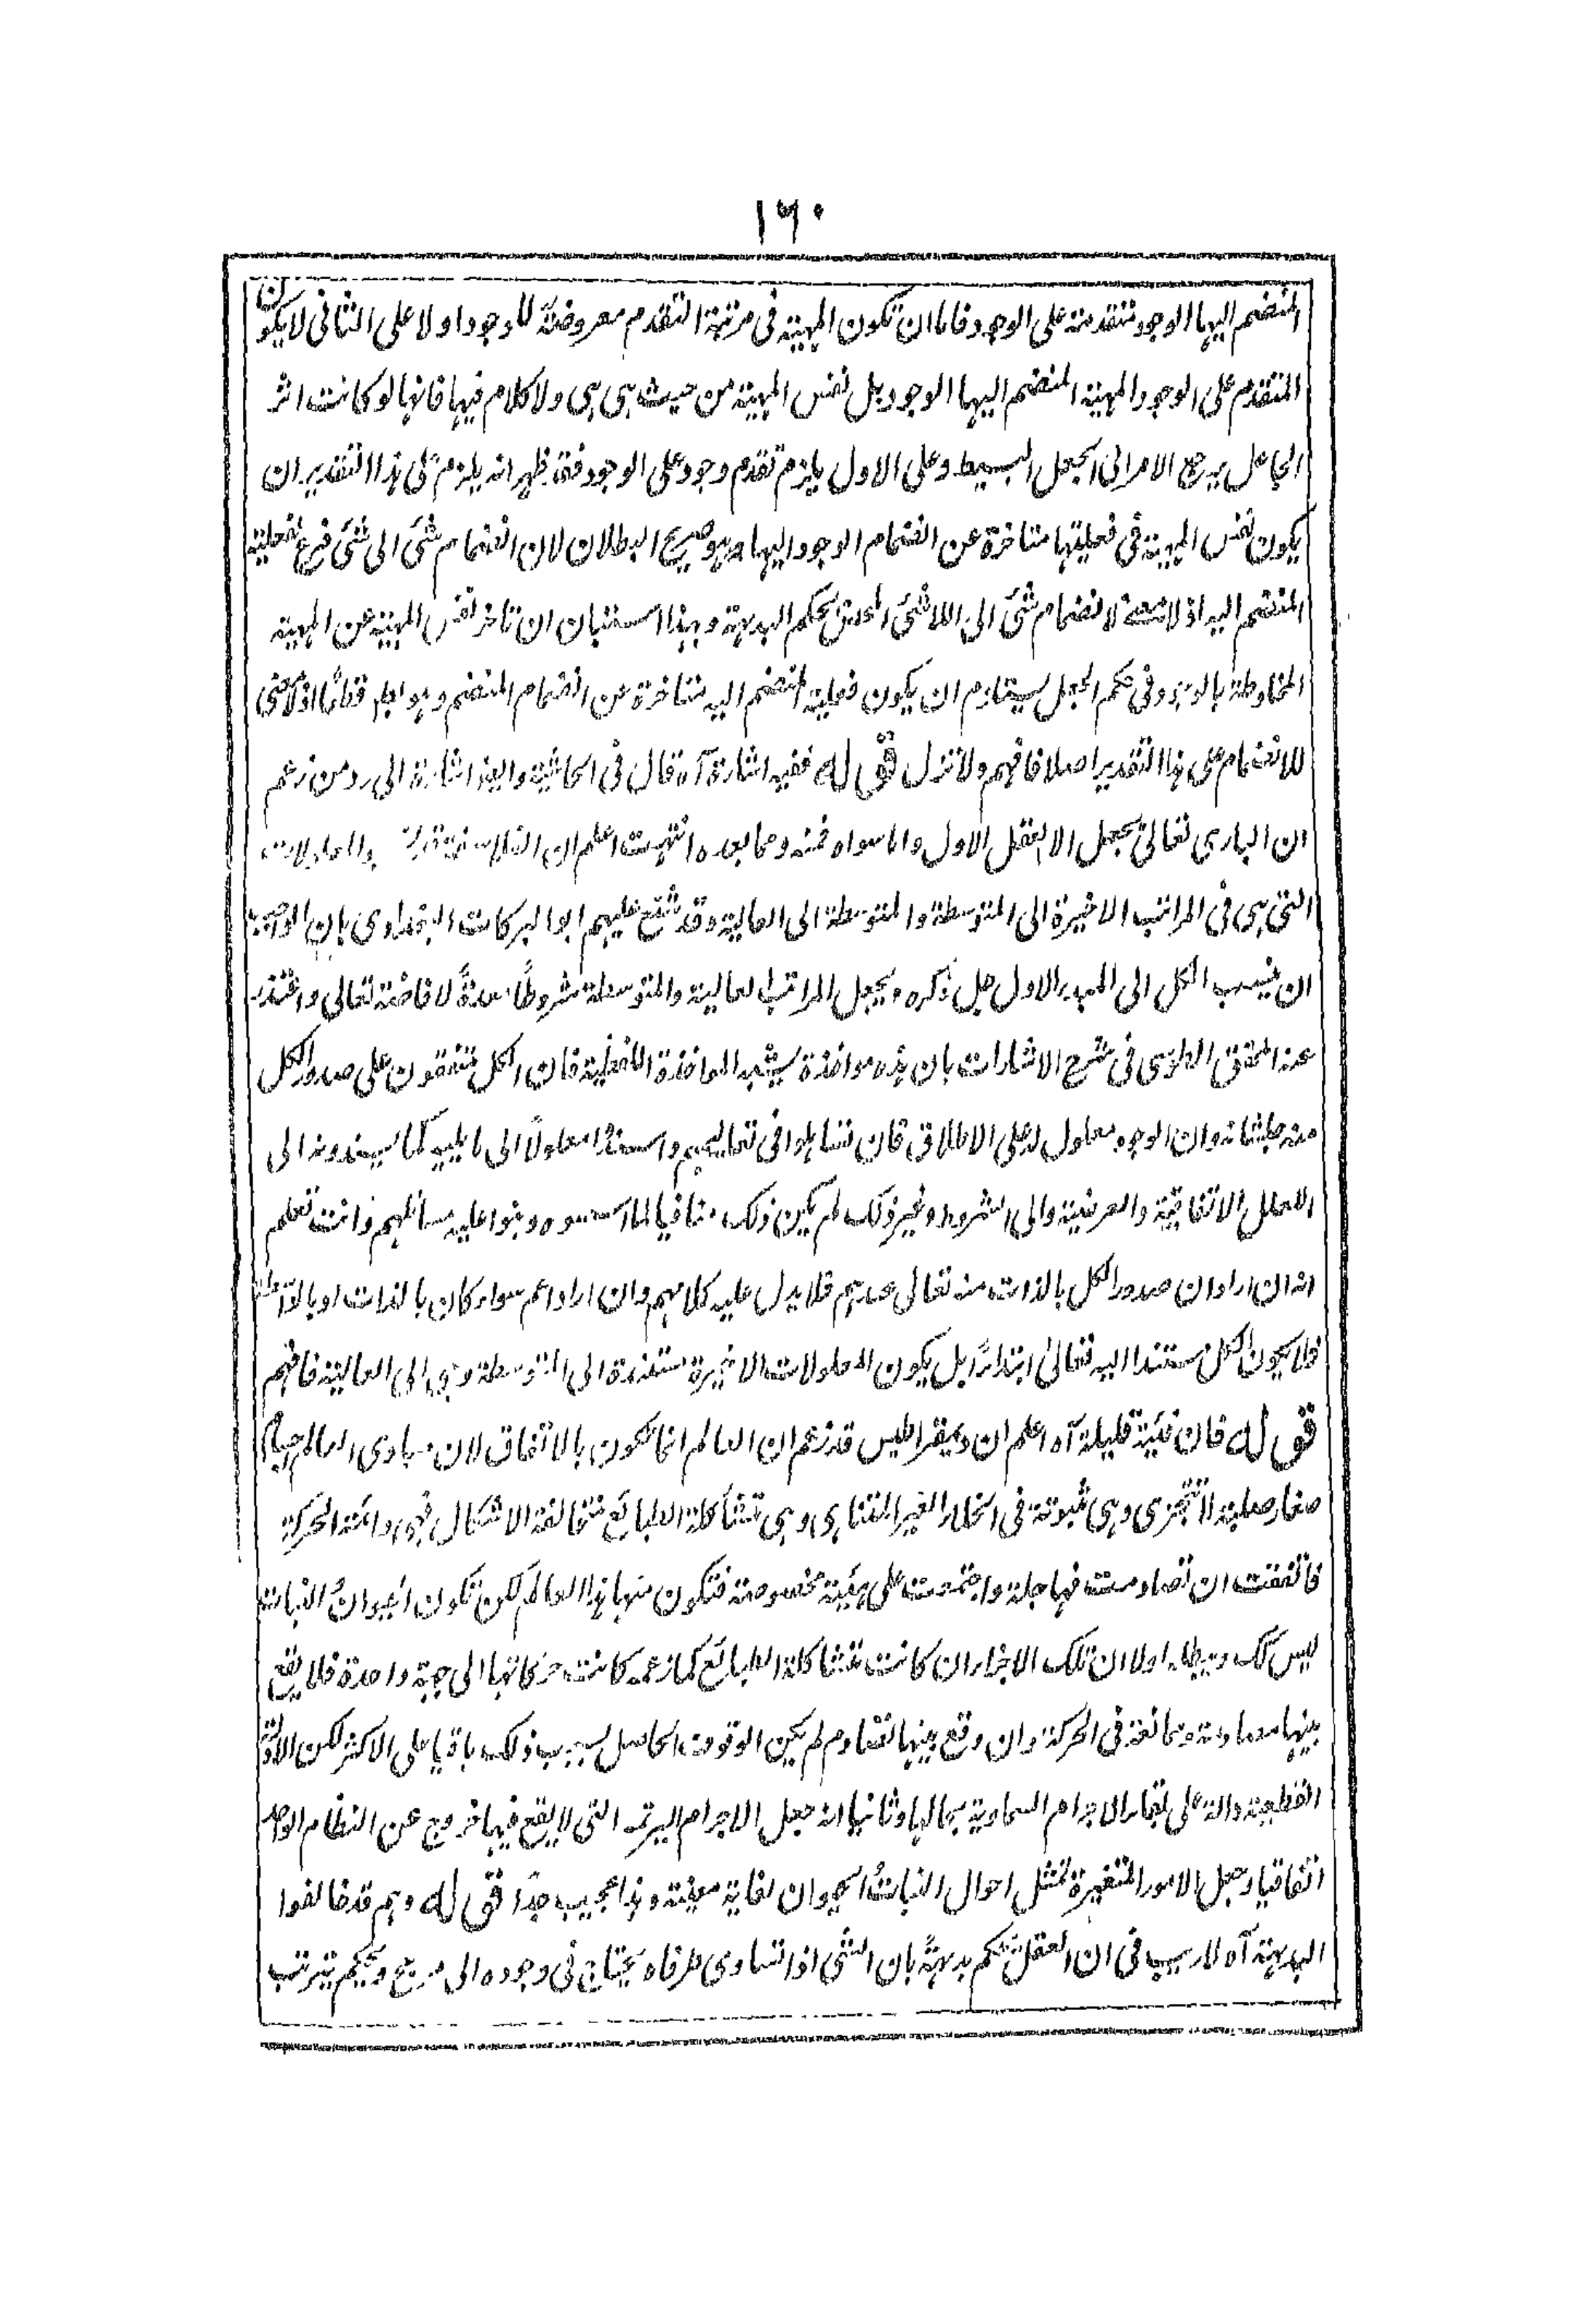 ١٦٠
المنضم اليها الوجود متقدمة على الوجود فاما ان تكون المهية فى مرتبة التقدم معروضة للوجود اولا على الثانى لا يكون
المتقدم على الوجود المهية المنضم اليها الوجود بل نفس المهية من حيث هى هى ولا كلام فيها فانها لو كانت اثر
الجاعل يرجع الامر الى الجعل البسيط وعلى الاول يلزم تقدم وجود على الوجود فقد ظهر انه يلزم على هذا التقدير ان
يكون نفس المهية فى فعليتها متاخرة عن انضمام الوجود اليها وهو صريح البطلان لان انضمام شئ الى شئ فرع فعلية
المنضم اليه اذ لا معنى لانضمام شئ الى اللاشئ المحض بحكم البديهة وبهذا استبان ان تاخر نفس المهية عن المهية
المخلوطة بالوجود فى حكم الجعل يستلزم ان يكون فعلية المنضم اليه متاخرة عن انضمام المنضم وهو باطل قطعًا اذ لا معنى
للانضمام على هذا التقدير اصلا فافهم ولا تزل قوله ففيه اشارة آه قال فى الحاشية وايضا اشارة الى رد من زعم
ان البارى تعالى يجعل الا العقل الاول واما سواه فمنه ومما بعده انتهت اعلم ان الفلاسفة والمعلولات
التى هى فى المراتب الاخيرة الى المتوسطة والمتوسطة الى العالية وقد شنع عليهم ابو البركات البغدادى بان الواجب
ان ينسب الكل الى المبدء الاول جل ذكره ويجعل المراتب العالية والمتوسطة شروطًا معدةً لافاضته تعالى واعتذر
عنه المحقق الطوسى فى شرح الاشارات بان هذه مواخذة يشبه المواخذة اللفظية فان الكل متفقون على صدور الكل
منه جل شانه وان الوجود معلول له على الاطلاق فان تساهلوا فى تعاليمهم واسندوا معلولًا الى ما يليه كما يسندونه الى
العلل الاتفاقية والعرضية والى الشروط وغير ذلك لم يكن ذلك منافيا لما اسسوه وبنوا عليه مسائلهم وانت تعلم
انه ان اراد ان صدور الكل بالذات منه تعالى عندهم فلا يدل عليه كلامهم وان اراد اعم سواء كان بالذات او بالواسطة
فلا يكون الكل مستندا اليه تعالى ابتداءً بل يكون المعلولات الاخيرة مستندة الى المتوسطة وهى الى العالية فافهم
قوله فان فئية قليلة آه اعلم ان ديمقراطيس قد زعم ان العالم انما يكون بالاتفاق لان مبادى العالم اجسام
صغار صلبة لا تتجزى وهى مبثوثة فى الخلاء الغير المتناهى وهى متشاكلة الطبائع متخالفة الاشكال فهى دائمة الحركة
فاتفقت ان تصادمت فيها جملة واجتمعت على هيئة مخصوصة فتكون منها هذا العالم لكن تكون الحيوان والنبات
ليس كك ويبطله اولا ان تلك الاجزاء ان كانت متشاكلة الطبائع كما زعمه كانت حركاتها الى جهة واحدة فلا يقع
بينها مصادمة وممانعة فى الحركة وان وقع بينها تصادم لم يكن الوقوف الحاصل بسبب ذلك باقيا على الاكثر لكن الادلة
القطعية دالة على بقاء الاجرام السماوية بحالها وثانيا انه جعل الاجرام السرمدية التى لا يقع فيها خروج عن النظام الواحد
اتفاقيا وجعل الامور المتغيرة كمثل احوال النبات والحيوان لغاية معينة وهذا عجيب جدًا قوله وهم قد خالفوا
البديهة آه لا ريب فى ان العقل يحكم بديهةً بان الشئ اذا تساوى طرفاه يحتاج فى وجوده الى مرجح ويحكم بترتب